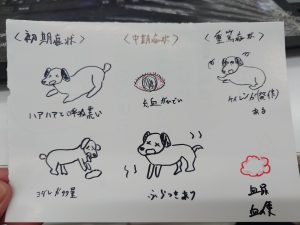 〈初期症状〉
〈中期症状〉
〈重篤症状〉
ハアハアと呼吸荒い
充血がひどい
ケイレン(発作)
ある
ヨダレが多量
ふらつきあり
血尿
血便